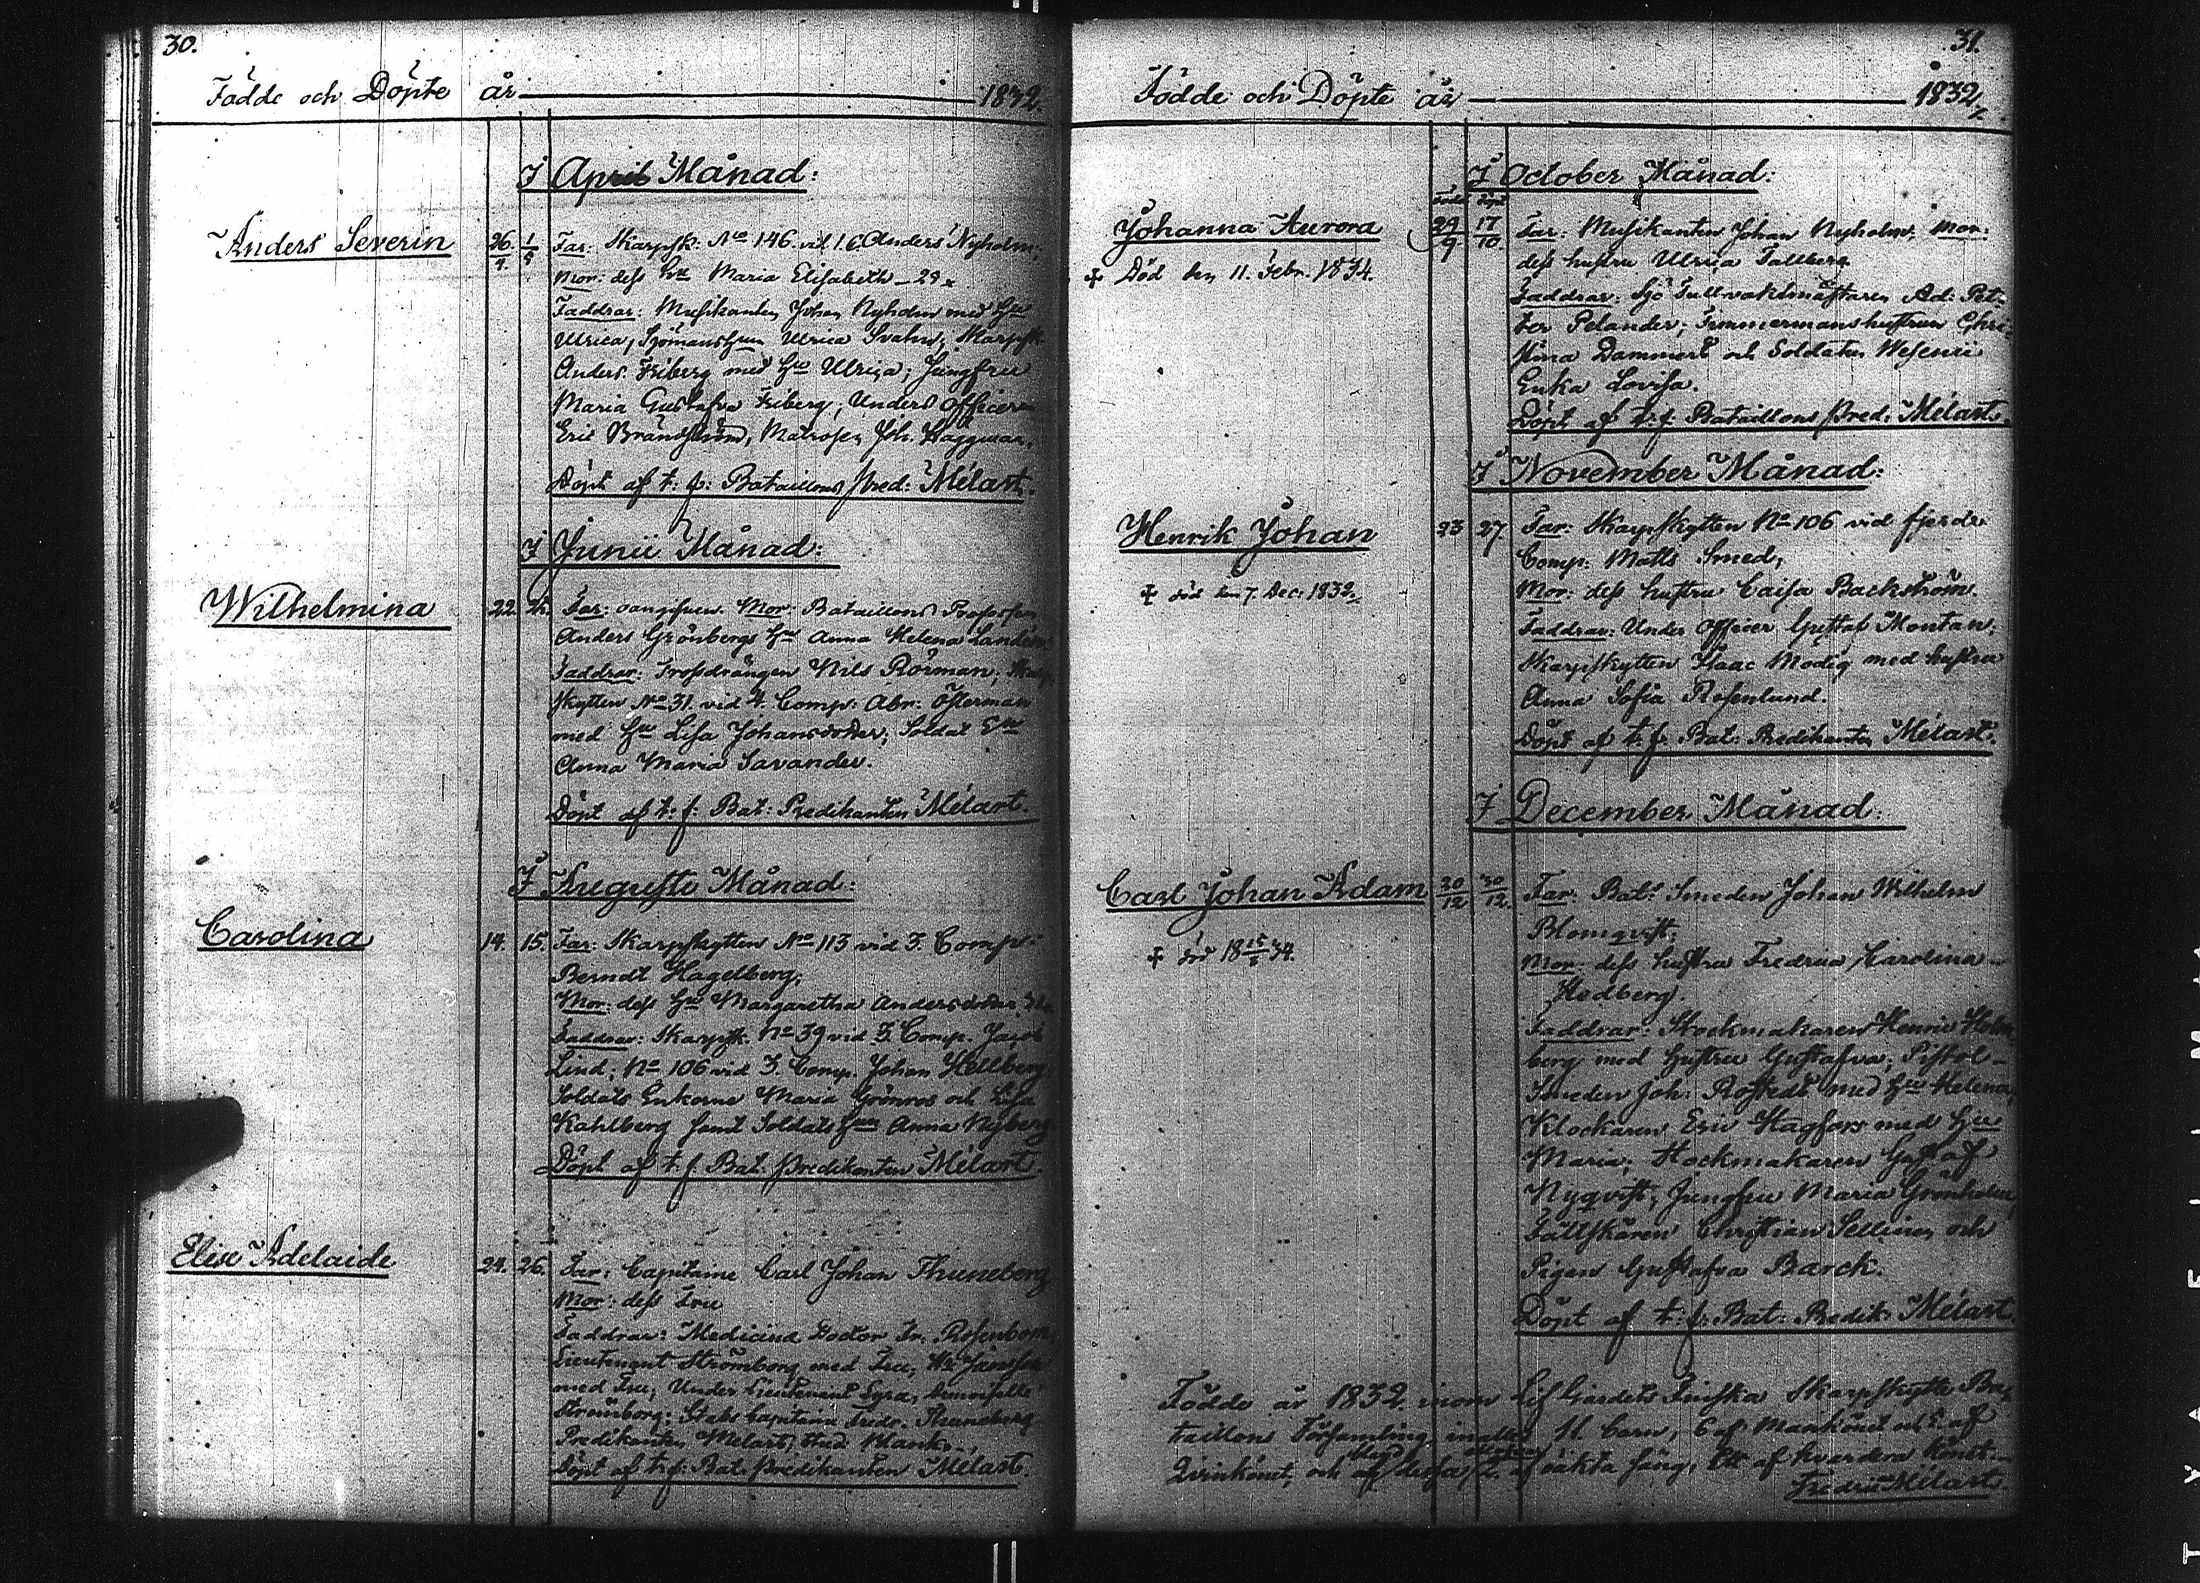 30.
Födde och Döpte år 1832.
I April Månad:
Anders Severin
26. 1
4. 5
Far: Skarpsk: No 146. vid 1 C. Anders Nyholm;
Mor: dess Hu Maria Elisabeth - 29
Faddrar: Musikanten Johan Nyholm med Hu
Ulrica, Sjömans Hrun Ulrica Svahn; Skarpsk
Anders Friberg med Hu Ulrica; Jungfru
Maria Gustafva Friberg; Under Officern
Eric Brändström, Matrosen Joh. Häggman.
Döpt af t: f: Bataillons Pred: Mélart.
I Junii Månad:
Wilhelmina
22.
Far: oangifven. Mor: Bataillons Profossen
Anders Grönbergs Hu Anna Helena
Faddrar: Trossdrängen Nils Rörman;
skytten No 31. vid 4. Comp: Abr: Österman
med Hu Lisa Johansdotter; Soldat
Anna Maria Savander.
Döpt af t: f: Bat: Predikanten Mélart.
I Augusti Månad:
Carolina
14. 15.
Far: Skarpskytten No 113 vid 3. Comp:
Berndt Hagelberg;
Mor: dess Hu Margaretha Andersdotter
Faddrar: Skarpsk. No 39 vid 3. Comp. Jacob
Lind; No 106 vid 3. Comp. Johan Hellberg
Soldats Enkorna Maria Grönros och Lisa
Kahlberg samt Soldats Anna Nyberg
Döpt af t. f. Bat. Predikanten Mélart.
Elise Adelaide
24. 26.
Far: Capitaine Carl Johan Thuneberg
Mor: dess Fru
Faddrar: Medicinæ Doctor Fr. Rosenbom
Lieutenant Strömborg med Fru;
med Fru; Under Lieutenant
Strömborg; Stabs Capitaine Fredr. Thuneberg
Predikanten Mélart;
Döpt af t: f: Bat: Predikanten Mélart
31.
Födde och Döpte år 1832.
I October Månad:
Född Döpt
Johanna Aurora
29 17
9 10.
Far: Musikanten Johan Nyholm; Mor:
dess hustru Ulrica Tallberg
Död den 11. Febr. 1834.
Faddrar: Sjö Tullvaktmästaren Ad: Pet-
ter Pelander; Timmermanshustrun Chri-
stina Dammert och Soldaten
Enka Lovisa.
Döpt af t: f: Bataillons Pred: Mélart.
I November Månad:
Henrik Johan
23 27.
Far: Skarpskytten No 106 vid fjerde
Comp: Matts Smed;
död den 7. Dec: 1832.
Mor: dess hustru Caisa Backström.
Faddrar: Under Officer Gustaf Montan;
Skarpskytten Isaac Modig med hustru
Anna Sofia Rosenlund.
Döpt af t: f: Bat: Predikanten Mélart.
I December Månad:
Carl Johan Adam
20 30
12 12.
Far: Bats Smeden Johan Wilhelm
Blomqvist;
död 18 34.
Mor: dess hustru Fredrica Carolina
Hedberg.
Faddrar: Stockmakaren Henric Holm-
berg med hustru Gustafva; Pistol-
Smeden Joh: Rostedt med Hu Helena,
Klockaren Eric Hagfors med Hu
Maria; Stockmakaren Gustaf
Nyqvist; Jungfru Maria Grönholm,
Fältskären Christian Sellin och
Pigan Gustafva Barck.
Döpt af t: f: Bat: Predik: Mélart.
Födde år 1832 inom Lif Gardets Finska Skarpskytte Ba-
taillons Församling 11. Barn, 6 af Mankönet och 5. af
Qvinkönet, och af dessa 2. af oäkta säng, Ett af hvardera könet.
Fredric Mélart.